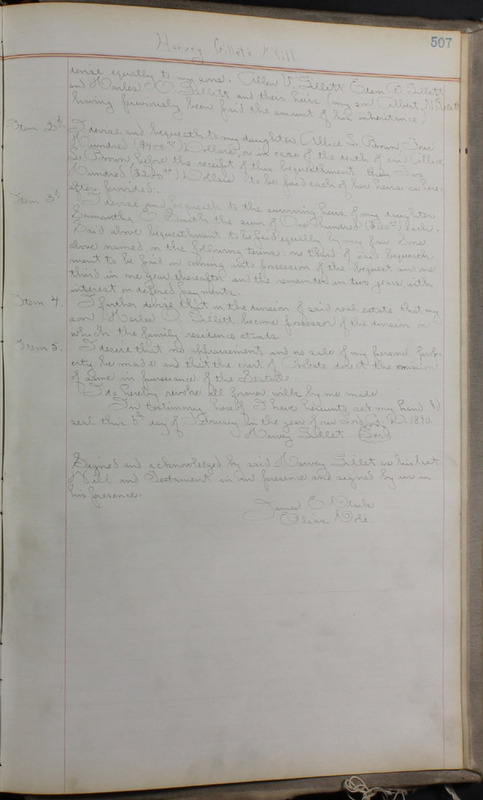 507
Harvey Gillett's Will
equally to my sons, Allen V. Gillett Edson D. Gillett
and Charles O. Gillett and their heirs (my son Albert
having previously been paid the amount of his inheritance.)
Item 2d. I devise and bequeath to my daughter Allice L. Brown Four
Hundred ($400.00) Dollars, or in case of the death of said Allice
L. Brown before the receipt of this bequeathment then Two
Hundred ($200.00) Dollars to be paid each of her heirs as here-
after provided.
Item 3d. I devise and bequeath to the surviving heirs of my daughter
Samantha Smith the sum of One Hundred ($100) Each.
Said above bequeathment to be paid equally by my four sons
above named on the following terms: one third of said bequeath-
ment to be paid on coming into possession of the bequest and one
third in one year thereafter and the remainder in two years with
interest on deferred payments.
Item 4. I further devise that in the division of said real estate that my
son Charles O. Gillett become possessor of the division on
which the family residence stands.
Item 5. I desire that no appraisement and no sale of my personal prop-
erty be made and that the court of Probate direct the omission
of same in pursuance of the Statute.
I do hereby revoke all former wills by me made
In testimony hereof I have hereunto set my hand &
seal this 5th day of February in the year of our Lord A.D. 1890.
Harvey Gillett (Seal)
Signed and acknowledged by said Harvey Gillett as his last
Will and Testament in our presence and signed by us in
his presence.
James E. Clark
Cole